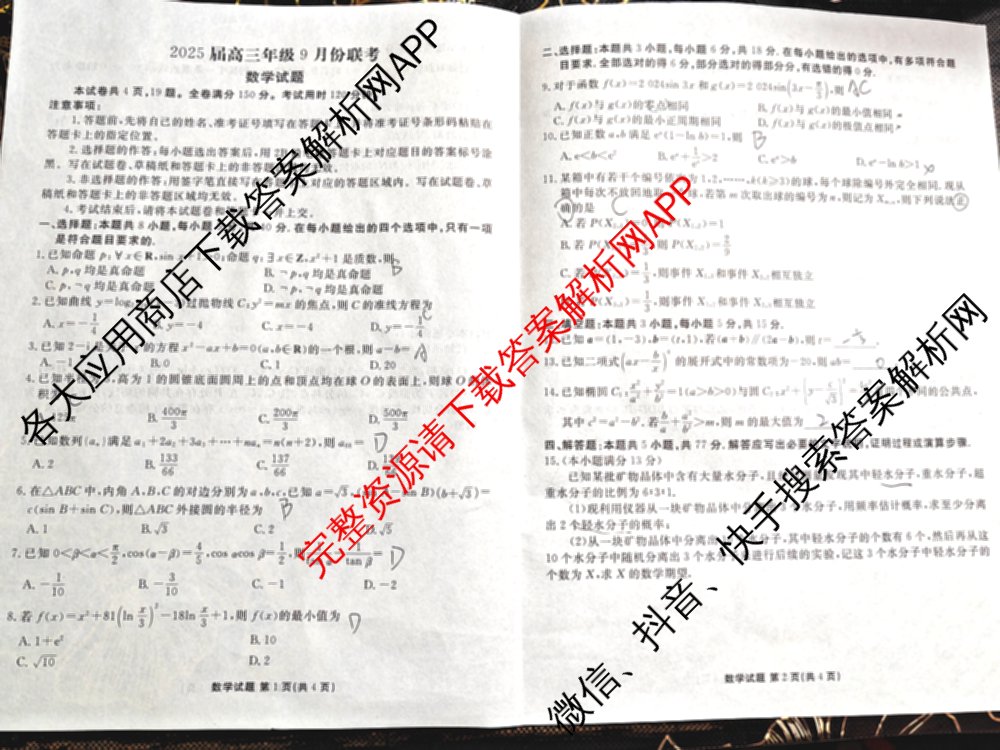 2025届高三年级9月份联考
数学试题
本试卷共4页,19题。全卷满分150分。考试用时120分
注意事项:
1.答题前,先将自己的姓名、准考证号填写在答题 将准考证号条形码粘贴在
答题卡上的指定位置。
2.选择题的作答:每小题选出答案后,用2B 答题卡上对应题目的答案标号涂
黑。写在试题卷、草稿纸和答题卡上的非答题 无效。
3.非选择题的作答:用签字笔直接写在 对应的答题区域内。写在试题卷、草
稿纸和答题卡上的非答题区域均无效。
4.考试结束后,请将本试题卷和 并上交。
一、选择题:本题共8小题,每小题 40分.在每小题给出的四个选项中,只有一项
是符合题目要求的.
1.已知命题p:∀x∈R,sin x 0;命题q:∃x∈Z,x²+1是质数,则 B
A.p,q均是真命题 B.¬p,q均是真命题
C.p,¬q均是真命题 D.¬p,¬q均是真命题
2.已知曲线y=log 过抛物线C:y²=mx的焦点,则C的准线方程为 C
A.x=-1/4 B.y=-4 C.x=-4 D.y=-1/4
3.已知2-i是关于 的方程x²-ax+b=0(a,b∈R)的一个根,则a-b= A
A.-1 B.0 C.1 D.20
4.已知 高为1的圆锥底面圆周上的点和顶点均在球O的表面上,则球O
B.400π/3 C.200π/3 D.500π/3
5.已知数列{aₙ}满足a₁+2a₂+3a₃+⋯+naₙ=n(n+2),则 D
A.2 B.133/66 C.137/66 D.
6.在△ABC中,内角A,B,C的对边分别为a,b,c,已知a=√3, B)(b+√3)=
c(sin B+sin C),则△ABC外接圆的半径为 B
A.1 B.√3 C.2 D.√5
7.已知0<β<α<π/2,cos(α-β)=4/5,cos αcos β=1/2,则 1/tan β= D
A.-1/10 B.-3/10 C.-1 D.-2
8.若f(x)=x²+81(ln x/3)²-18ln x/3+1,则f(x)的最小值为 D
A.1+e² B.10
C.√10 D.2
数学试题 第1页(共4页)
二、选择题:本题共3小题,每小题6分,共18分.在每小题给出的选项中,有多项符合题
目要求.全部选对的得6分,部分选对的得部分分,有选错的得0分.
9.对于函数f(x)=2 024sin 3x和g(x)=2 024sin(3x-π/3),则 AC
A.f(x)与g(x)的零点相同 B.f(x)与g(x)的最小值相同
C.f(x)与g(x)的最小正周期相同 D.f(x)与g(x)的极值点相同
10.已知正数a,b满足eᵃ(1-ln b)=1,则 B
C.eᵃ>b D.eᵃ-ln b>1
11.某箱中有若干个编号 1,2,⋯⋯,k(k≥3)的球,每个球除编号外完全相同.现从
箱中每次不放回地 球,若第m次取出球的编号为n,则记为 则下列说法正
确的是 C
A.若P(X =1
B.若P(X 1/3,则P(X )=2/9
C.若 1/3,则事件X 和事件X 相互独立
P(X )=1/3,则事件X 和事件X 相互独立
填空题:本题共3小题,每小题5分,共15分.
已知a=(1,-3),b=(t,1),若(a+b)∥(2a-b),则t=
13.已知二项式 的展开式中的常数项为-20,则ab= 0
14.已知椭圆C₁:x²/a²+y²/b²=1(a>b>0)与圆C₂:x²+ 同的公共点,
其中c²=a²-b².若 >m,则m的最大值为 2
四、解答题:本题共5小题,共77分.解答应写出必要 证明过程或演算步骤.
15.(本小题满分13分)
已知某批矿物品体中含有大量水分子,且 现其中轻水分子,重水分子,超
重水分子的比例为6:3:1.
(1)现利用仪器从一块矿物品体中 个水分子,用频率估计概率,求至少分离
出2个轻水分子的概率;
(2)从一块矿物品体中分离出 其中轻水分子的个数有6个,然后再从这
10个水分子中随机分离出3个水分 进行后续的实验,记这3个水分子中轻水分子的
个数为X,求X的数学期望.
数学试题 第2页(共4页)
各大应用商店下载答案解析网APP
完整资源请下载答案解析网APP
微信、抖音、快手搜索答案解析网